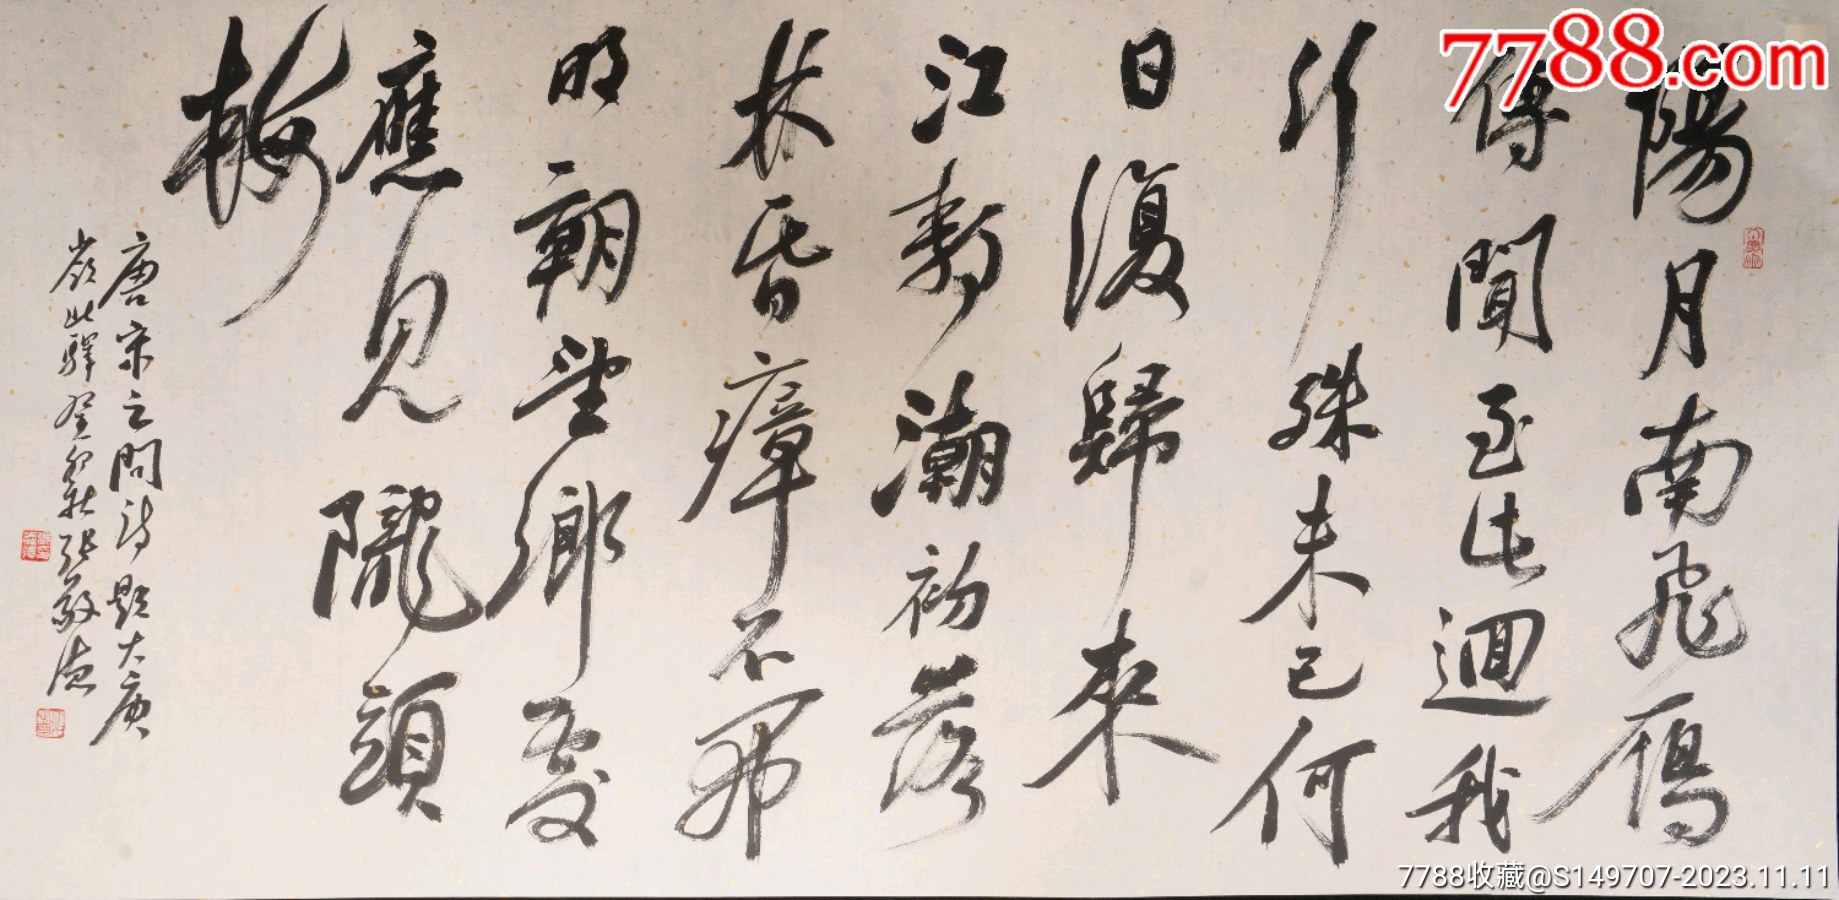 陽月南飛雁
傳聞至此迴我
行殊未已何
日復歸來
江靜潮初落
林昏瘴不開
明朝望鄉處
應見隴頭
梅
唐宋之問詩題大庾
嶺北驛癸卯秋張
7788.com
7788收藏@S149707-2023.11.11